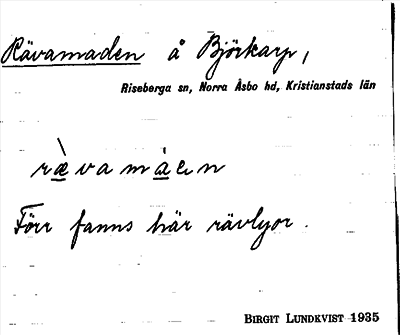 Rävamaden å Björkarp,
Riseberga sn, Norra Åsbo hd, Kristianstads län
ræ̀vamáen
Förr fanns här rävlyor.
BIRGIT LUNDKVIST 1935